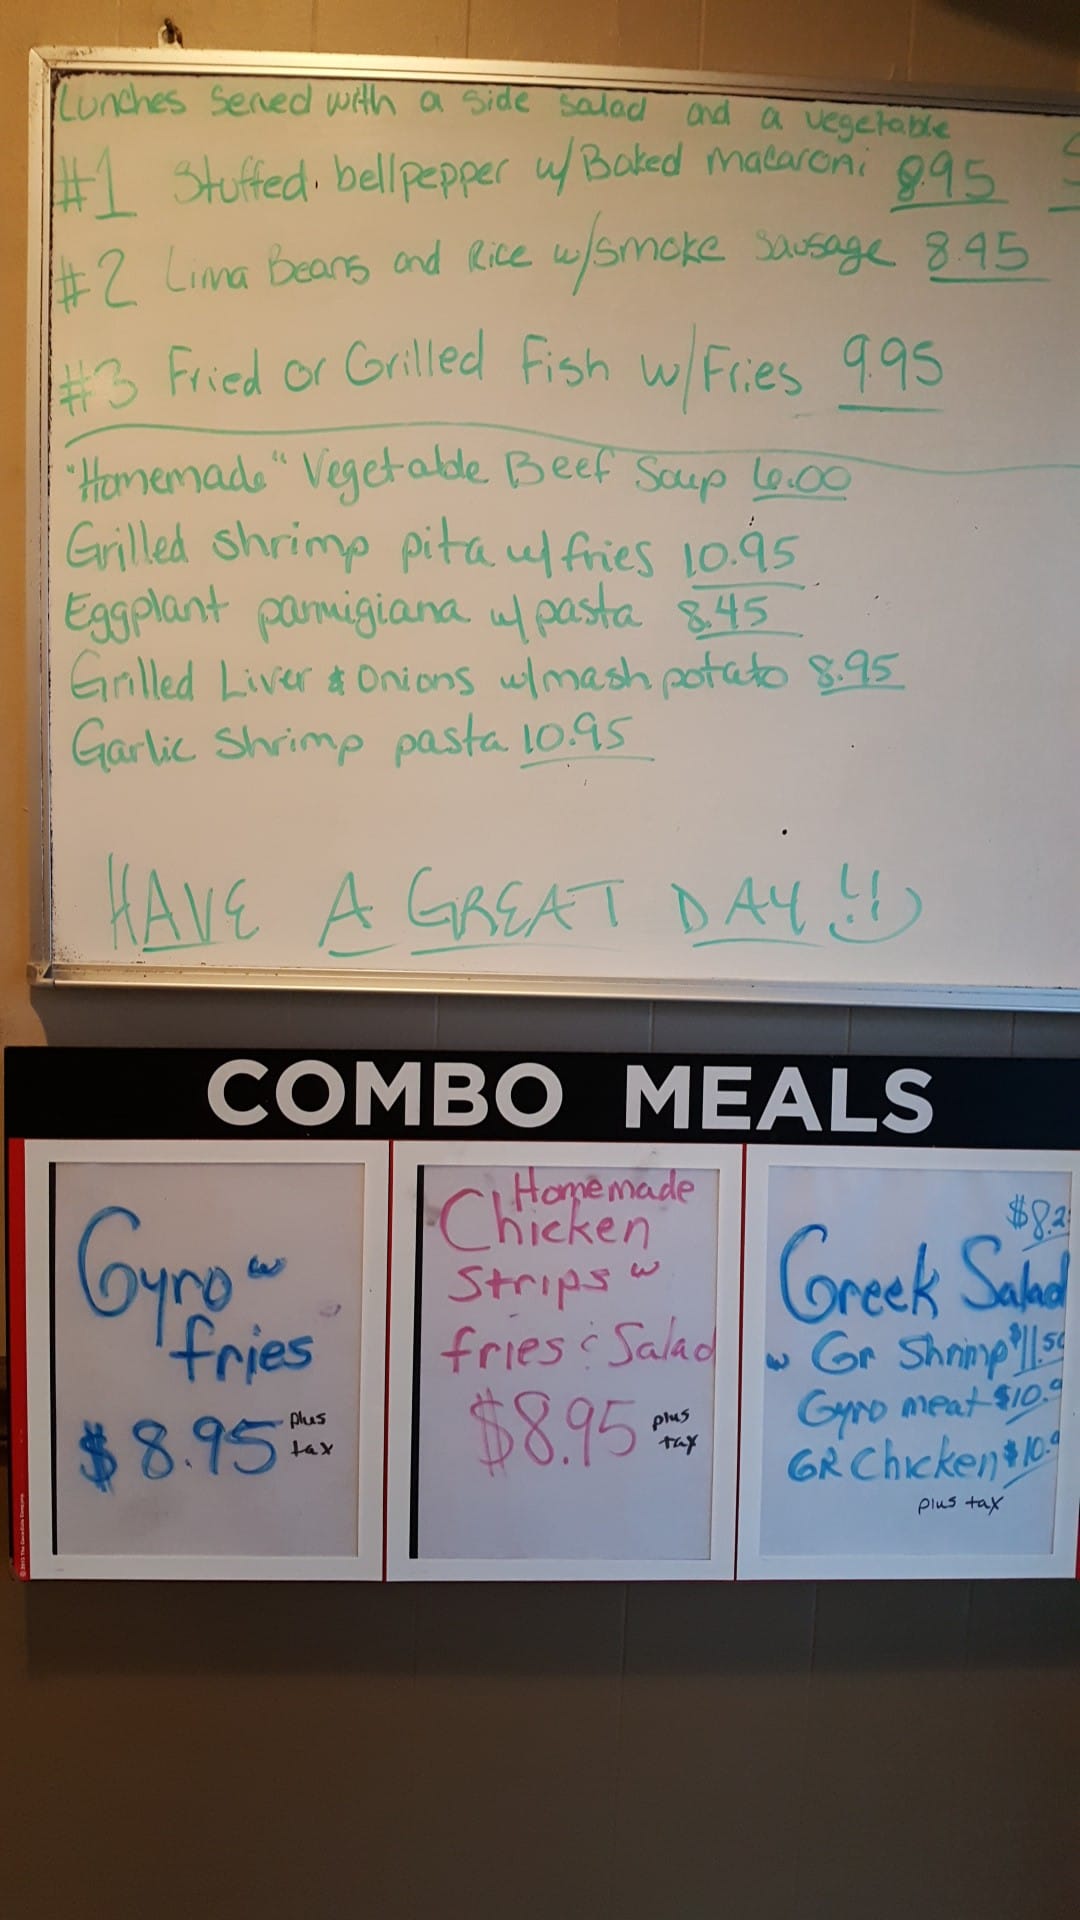 Lunches Served with a side salad and a vegetable
#1 Stuffed bellpepper w/ Baked macaroni 8.95
#2 Lima Beans and Rice w/smoke sausage 8.95
#3 Fried or Grilled Fish w/Fries 9.95
"Homemade" Vegetable Beef Soup 6.00
Grilled shrimp pita w/ fries 10.95
Eggplant parmigiana w/ pasta 8.45
Grilled Liver & Onions w/mash potato 8.95
Garlic Shrimp pasta 10.95
HAVE A GREAT DAY !!
COMBO MEALS
Gyro w
fries
$8.95 plus
tax
Homemade
Chicken
Strips w
fries & Salad
$8.95 plus
tax
$8.2
Greek Salad
w Gr Shrimp $11.50
Gyro meat $10.9
GR Chicken $10.9
plus tax